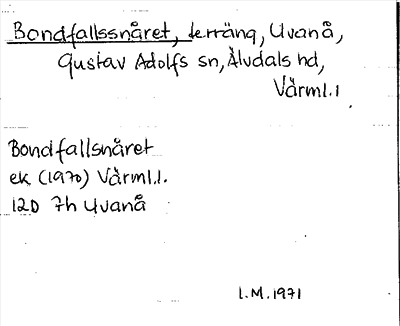 Bondfallssnåret, terräng, Uvanå,
Gustav Adolfs sn, Älvdals hd,
Värml.l
Bondfallsnåret
ek (1970) Värml.l.
12D 7h Uvanå
I.M. 1971